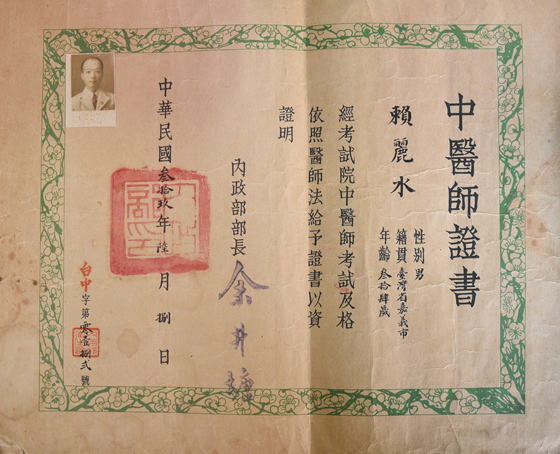 中醫師證書
賴麗水
性别男
籍貫臺灣省嘉義市
年齡叁拾肆歲
經考試院中醫師考試及格
依照醫師法給予證書以資
證明
內政部部長
余井塘
中華民國叁拾玖年陸月捌日
台中字第零壹捌弍號